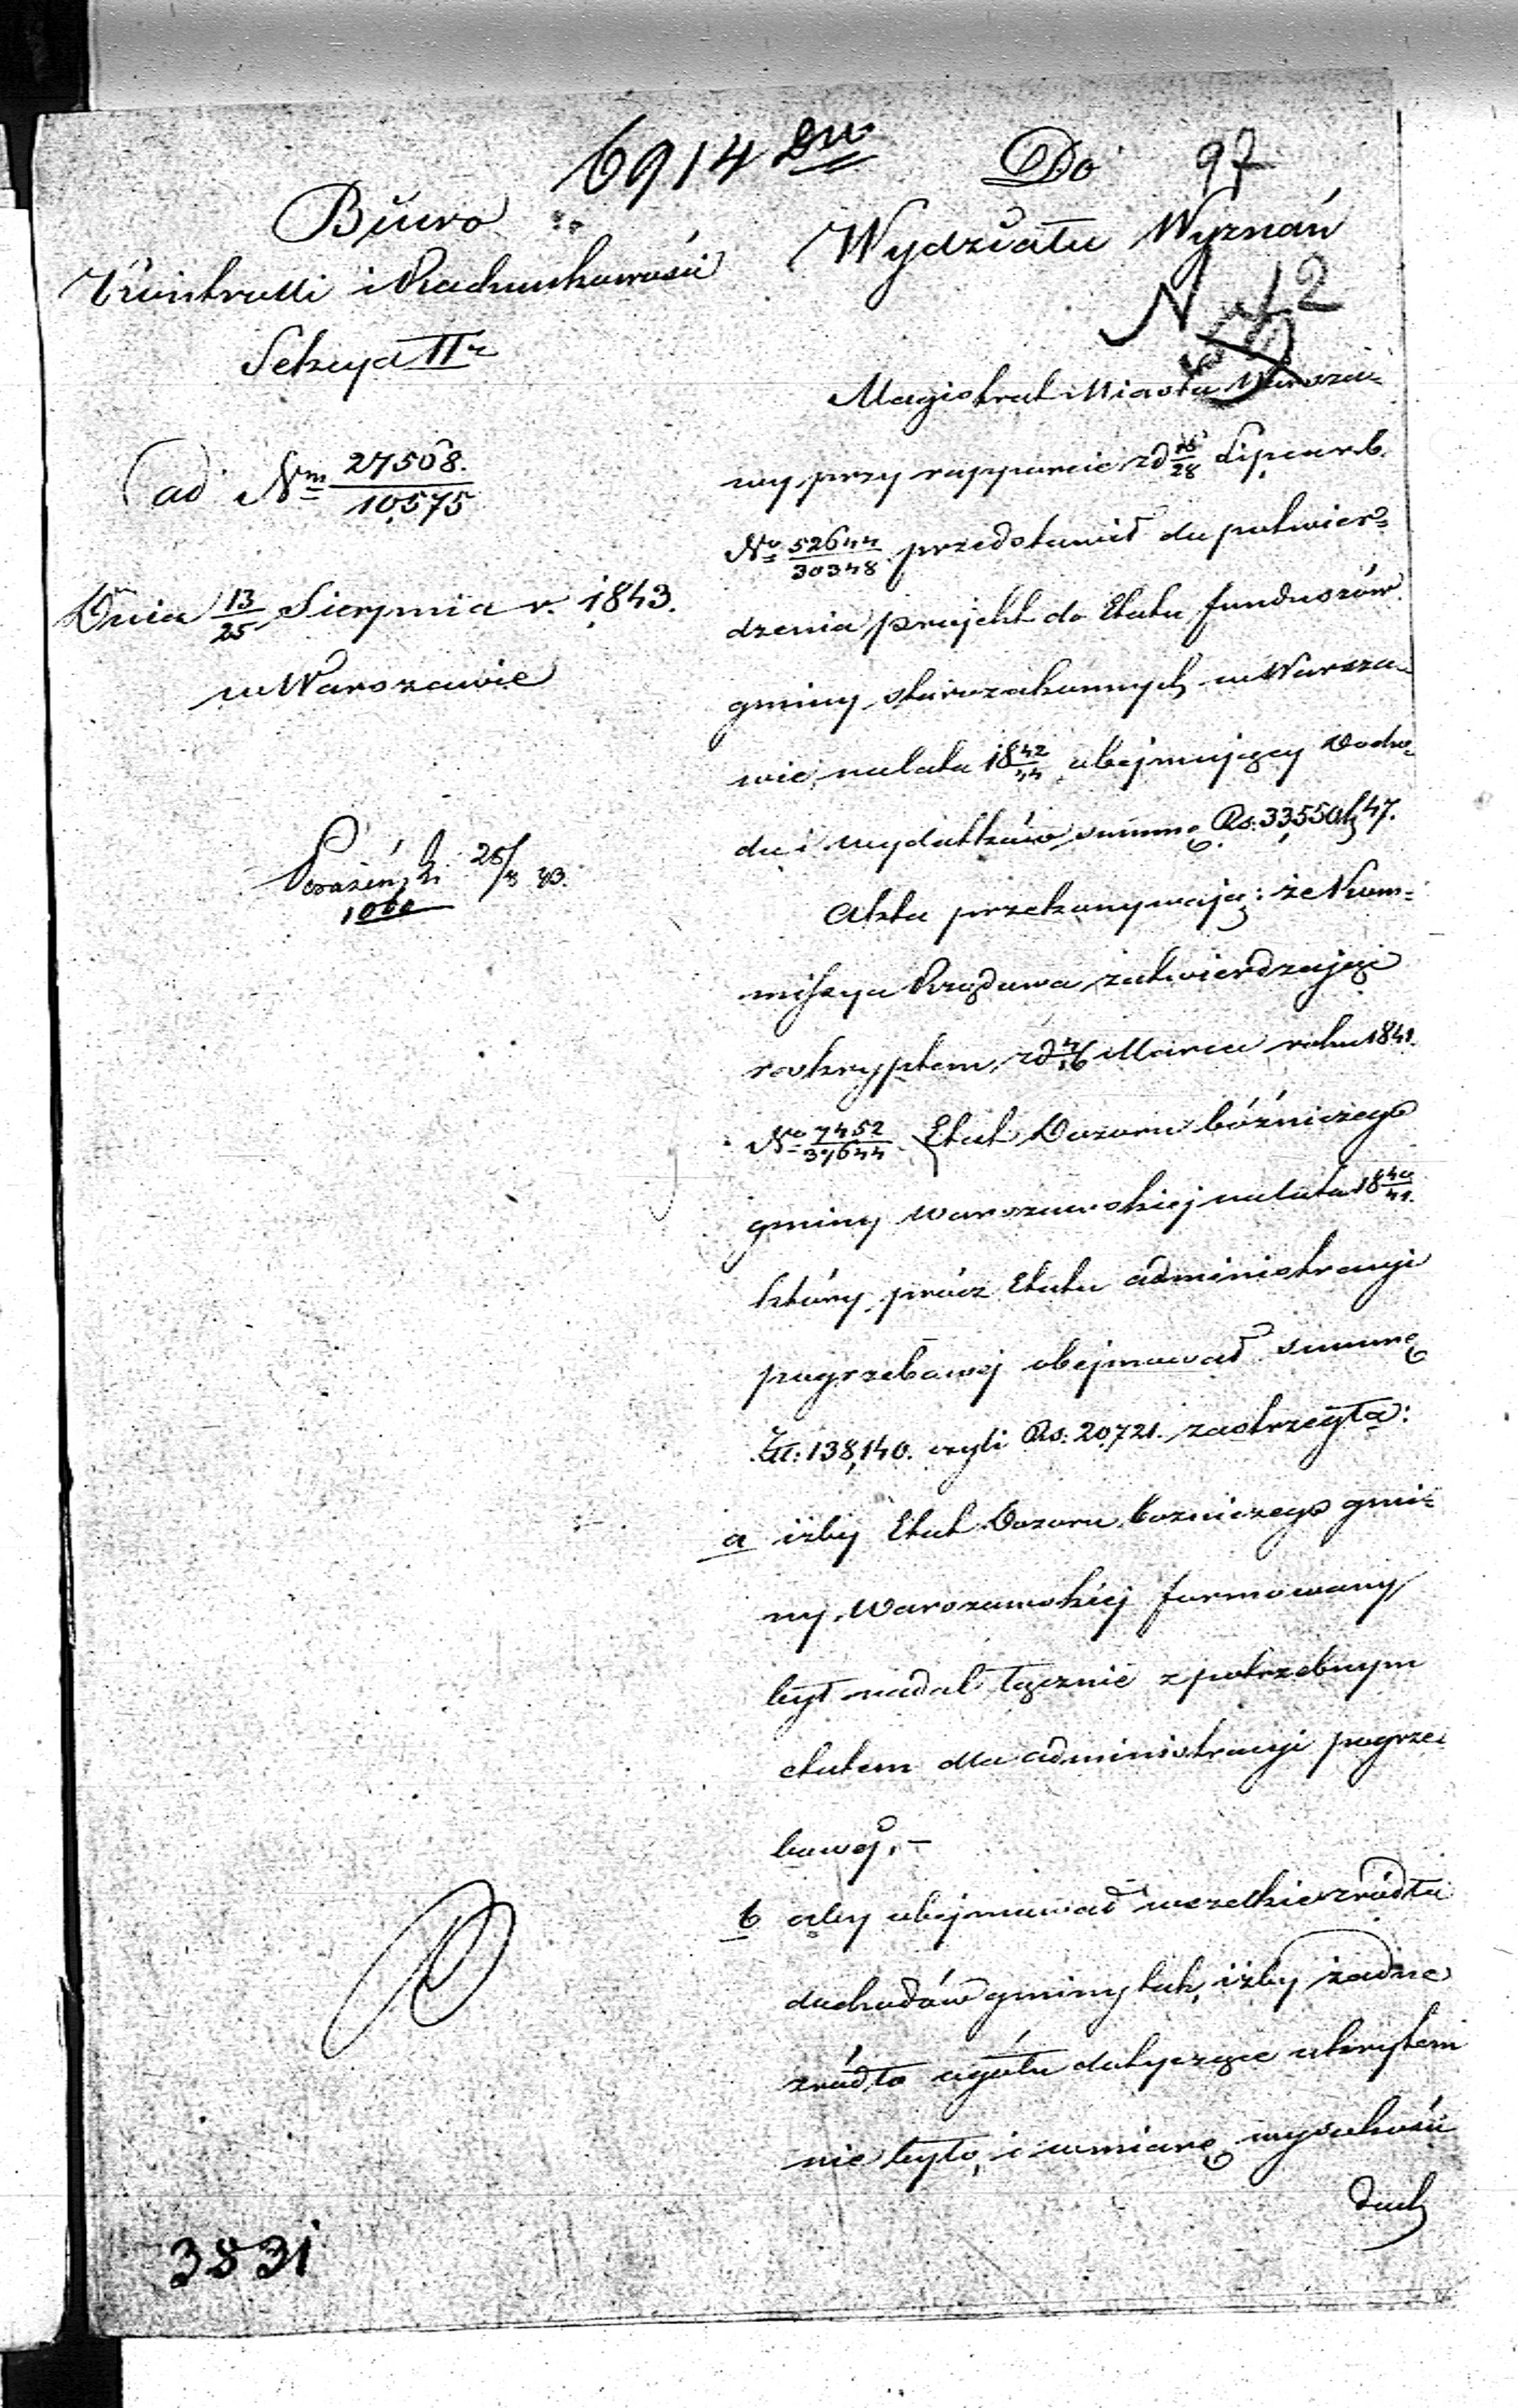 6914 Dw
97
Biuro
Kontrolli i Rachunkowości
Sekcya IIa
(ad Nm 27508./10,575
Dnia 13/25 Sierpnia r. 1843.
w Warszawie
25/8 43.
1060
Do
Wydziału Wyznań
N 2
Magistrat Miasta Warsza=
wy przy rapporcie z d /28 Lipca r.b.
No 52644/30348 przedstawił do potwier=
dzenia projekt do Etatu funduszów
gminy starozakonnych w Warsza=
wie, na lata 18 42/44 obejmujący docho=
du i wydatków summę Rs: 33,550 k 47.
Akta przekonywają: że Kom=
missya Rządowa zatwierdzając
reskryptem z d 4/16 Marca roku 1841.
No 7452/37644 Etat Dozoru bóźniczego
gminy warszawskiej na lata 18 40/41.
który prócz Etatu administracyi
pogrzebowej obejmował summę
Zł: 138,140. czyli Rs: 20,721. zastrzegła:
a iżby Etat Dozoru bożniczego gmi=
ny Warszawskiej formowany
był nadal łącznie z potrzebnym
etatem dla administracyi pogrze=
bowej. –
b aby obejmował wszelkie źródła
dochodów gminy tak, iżby żadne
źródło ogółu dotyczące ukrytem
nie było, i w miarę wysokości
doch
3831